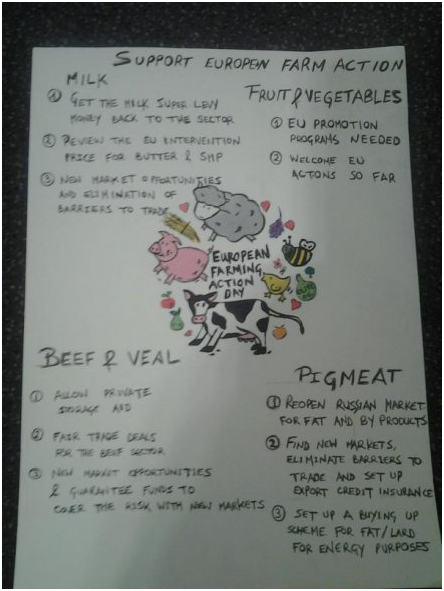 SUPPORT EUROPEAN FARM ACTION
MILK
① GET THE MILK SUPER LEVY
MONEY BACK TO THE SECTOR
② REVIEW THE EU INTERVENTION
PRICE FOR BUTTER & SMP
③ NEW MARKET OPPORTUNITIES
AND ELIMINATION OF
BARRIERS TO TRADE
FRUIT & VEGETABLES
① EU PROMOTION
PROGRAMS NEEDED
② WELCOME EU
ACTIONS SO FAR
EUROPEAN
FARMING
ACTION
DAY
BEEF & VEAL
① ALLOW PRIVATE
STORAGE AID
② FAIR TRADE DEALS
FOR THE BEEF SECTOR
③ NEW MARKET OPPORTUNITIES
& GUARANTEE FUNDS TO
COVER THE RISK, WITH NEW MARKETS
PIGMEAT
① REOPEN RUSSIAN MARKET
FOR FAT AND BY PRODUCTS
② FIND NEW MARKETS,
ELIMINATE BARRIERS TO
TRADE AND SET UP
EXPORT CREDIT INSURANCE
③ SET UP A BUYING UP
SCHEME FOR FAT/LARD
FOR ENERGY PURPOSES